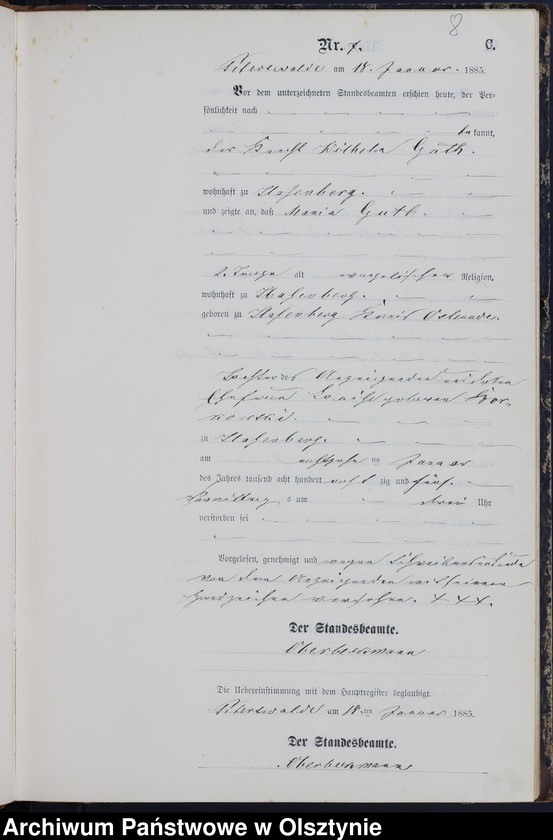 8
Nr. 7. C.
Peterswalde am 18. Januar 1885.
Vor dem unterzeichneten Standesbeamten erschien heute, der Per-
sönlichkeit nach
bekannt,
der Knecht Wilhelm Guth.
wohnhaft zu
und zeigte an, daß Maria Guth.
2 Tage alt evangelischer Religion,
wohnhaft zu
geboren zu Kreis Osterode.
Tochter des Anzeigenden und dessen
Ehefrau geborenen
zu
am achtzehn ten Januar
des Jahres tausend acht hundert acht zig und fünf
Vormittags um drei Uhr
verstorben sei
Vorgelesen, genehmigt und wegen Schreibensunkunde
von dem Anzeigenden mit seinem
Handzeichen versehen. + + +.
Der Standesbeamte.
Oberbeckmann
Die Uebereinstimmung mit dem Hauptregister beglaubigt
Peterswalde am 18. ten Januar 1885.
Der Standesbeamte.
Oberbeckmann
Archiwum Państwowe w Olsztynie